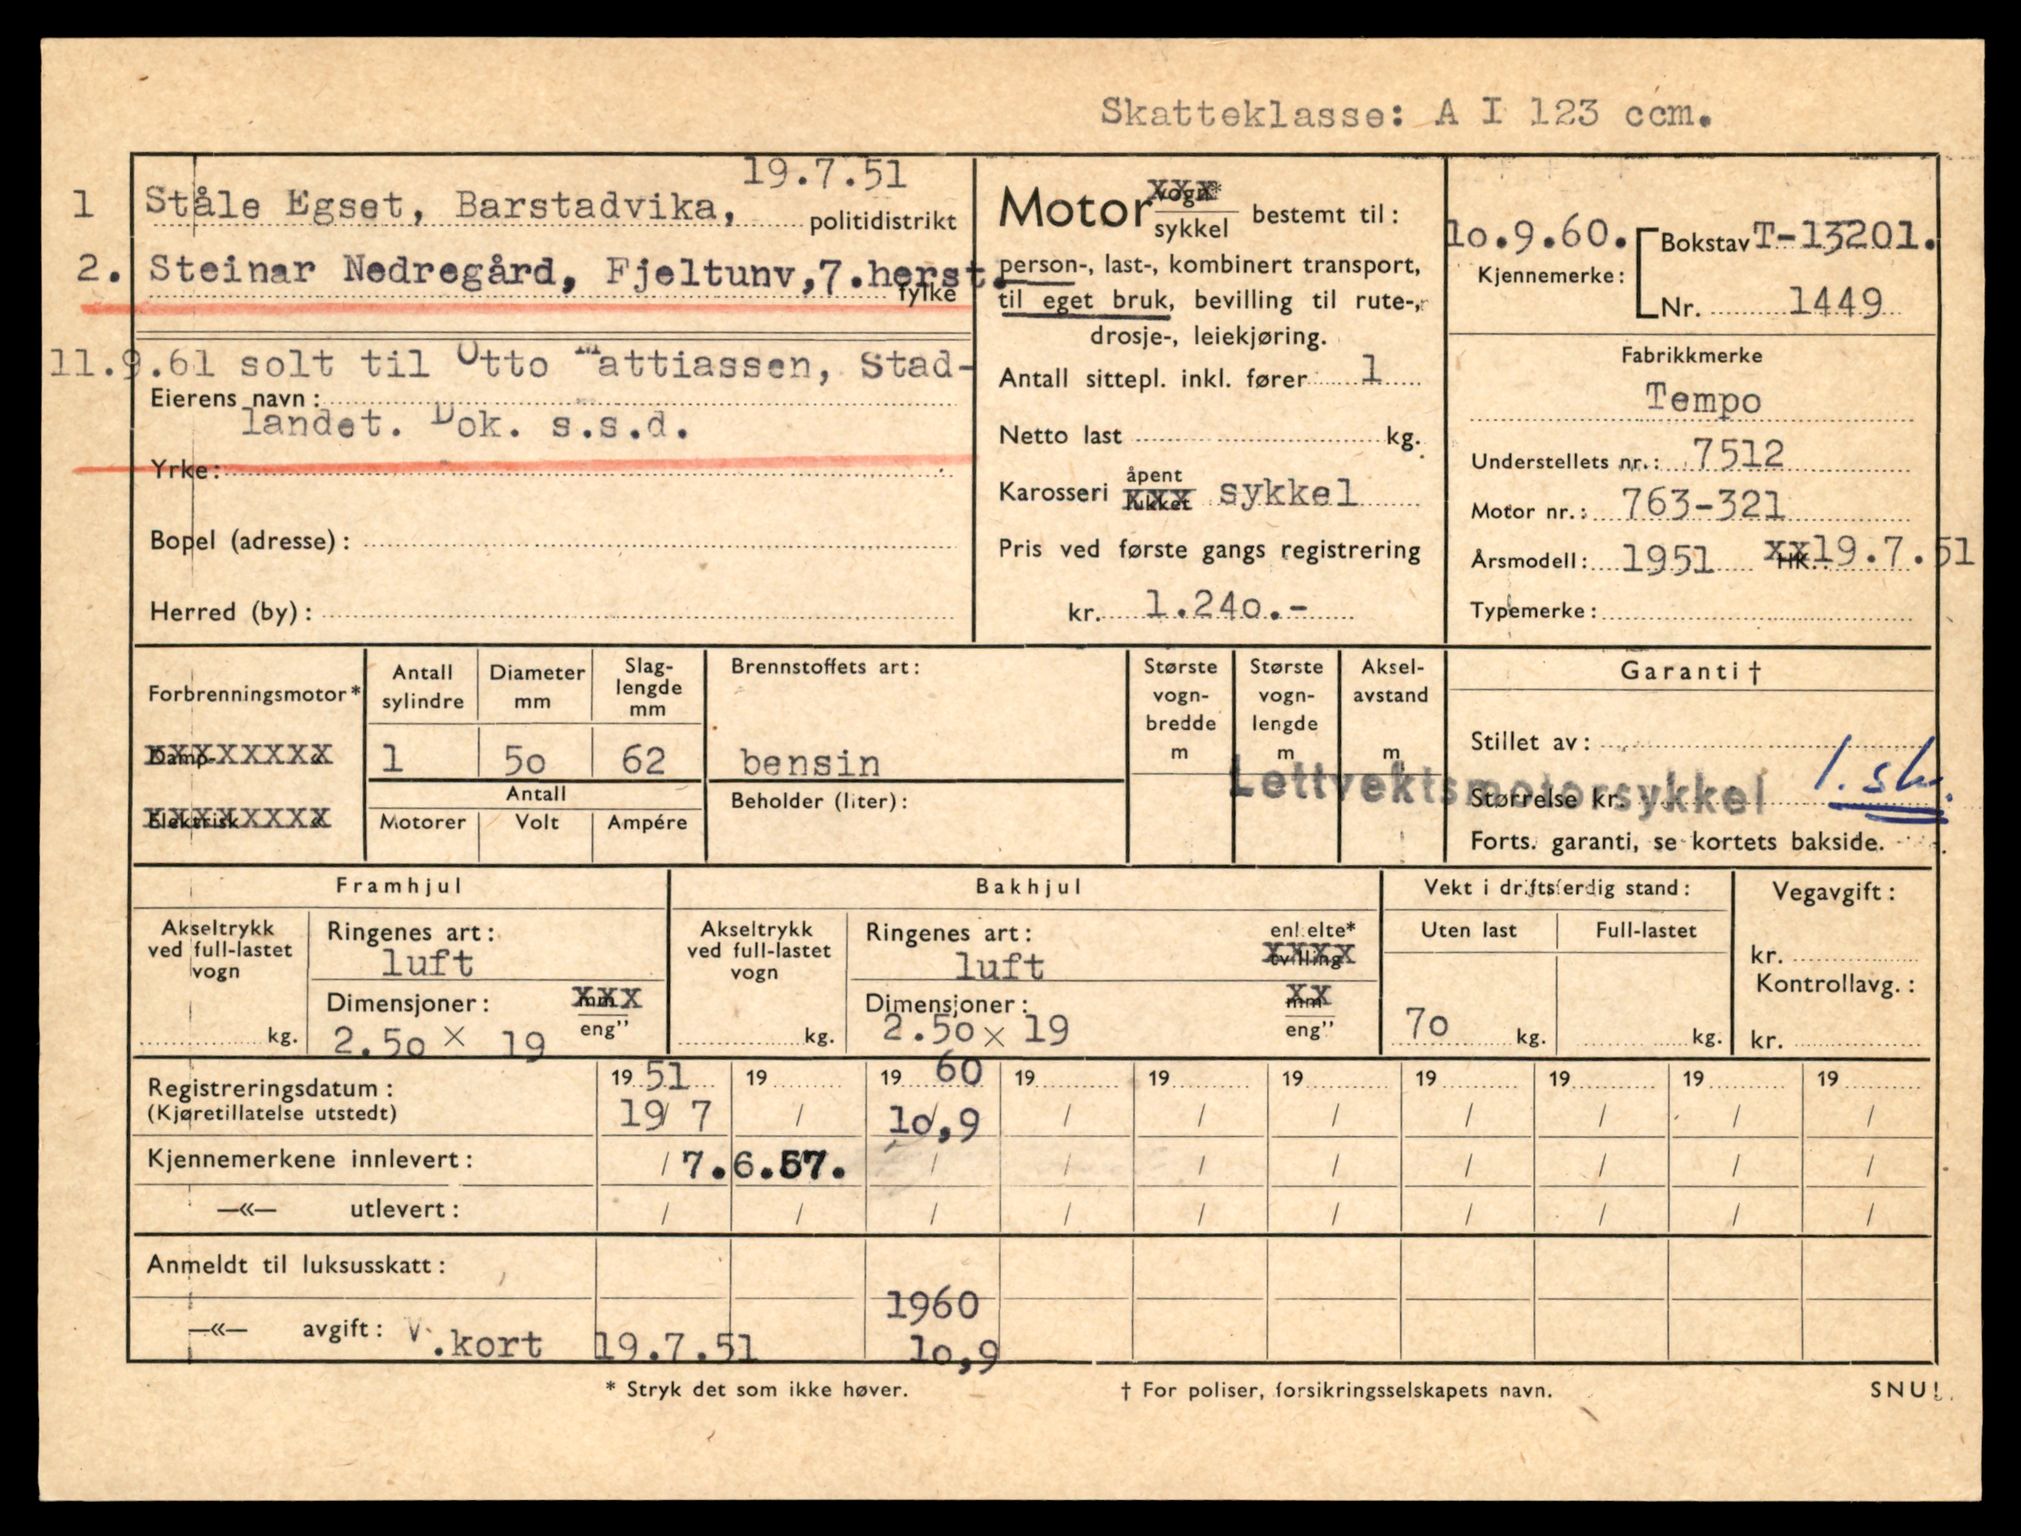 Skatteklasse: A I 123 ccm.
19.7.51
1 Ståle Egset, Barstadvika, politidistrikt
2. Steinar Nedregård, Fjeltunv,7.herst.
fylke
11.9.61 solt til Otto Mattiassen, Stad-
Eierens navn:
landet. Dok. s.s.d.
Yrke:
Bopel (adresse):
Herred (by):
Motor vogn*
sykkel bestemt til:
person-, last-, kombinert transport,
til eget bruk, bevilling til rute-,
drosje-, leiekjøring.
Antall sittepl. inkl. fører 1
Netto last kg.
Karosseri åpent
lukket sykkel
Pris ved første gangs registrering
kr. 1.240.-
10.9.60. Bokstav T-13201.
Kjennemerke:
Nr. 1449
Fabrikkmerke
Tempo
Understellets nr.: 7512
Motor nr.: 763-321
Årsmodell: 1951 HK. 19.7.51
Typemerke:
Forbrenningsmotor*
Damp-
Elektrisk
Antall sylindre
Diameter mm
Slag-
lengde
mm
1 50 62
Antall
Motorer Volt Ampére
Brennstoffets art:
bensin
Beholder (liter):
Største
vogn-
bredde
m
Største
vogn-
lengde
m
Aksel-
avstand
m
Garanti †
Stillet av:
Lettvektsmotorsykkel
Størrelse kr.
Forts. garanti, se kortets bakside.
Framhjul
Akseltrykk
ved full-lastet
vogn
kg.
Ringenes art:
luft
Dimensjoner: mm
eng"
2.50 × 19
Bakhjul
Akseltrykk
ved full-lastet
vogn
kg.
Ringenes art: enkelte*
tvilling
luft
Dimensjoner: mm
eng"
2.50 × 19
Vekt i driftsferdig stand:
Uten last Full-lastet
70 kg. kg.
Vegavgift:
kr.
Kontrollavg.:
kr.
Registreringsdatum: 19 51 19 19 60 19 19 19 19 19 19 19
(Kjøretillatelse utstedt) 19/7 / 10,9 / / / / / / /
Kjennemerkene innlevert: / 7.6.57. / / / / / / / /
—«— utlevert: / / / / / / / / / /
Anmeldt til luksusskatt:
1960
—«— avgift: V.kort 19.7.51 10,9
* Stryk det som ikke høver. † For poliser, forsikringsselskapets navn. SNU!